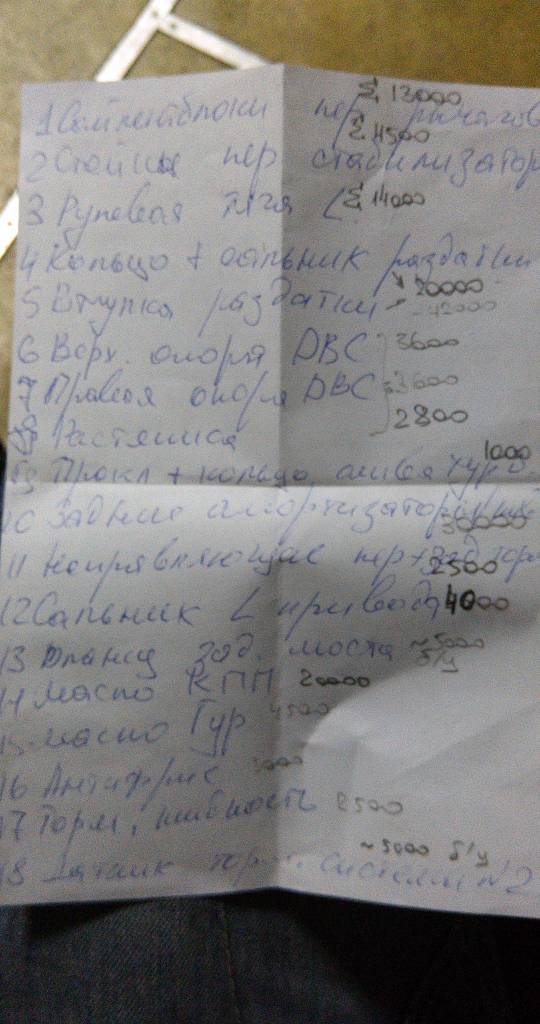 Σ 13000
1 Сайлентблоки пер рычагов
Σ 4500
2 Стойки пер стабилизатор
3 Рулевая тяга L Σ 14000
4 Кольцо + сальник раздатки
20000
5 Втулка раздатки - 42000
6 Верх. опора DBC 3600
7 Правая опора DBC 3600
2800
8 Растяжка
1000
9 Прокл + кольцо слива тур
10 Задние амортизаторы
30000
11 Направляющие пер + зад торм
2500
12 Сальник L привода 4000
13 Фланец зад. моста ~5000
б/у
14 Масло КПП 20000
15 Масло Гур 4500
16 Антифриз 3000
17 Торм. жидкость 2500
~5000 б/у
18 Датчик торм. системы №2